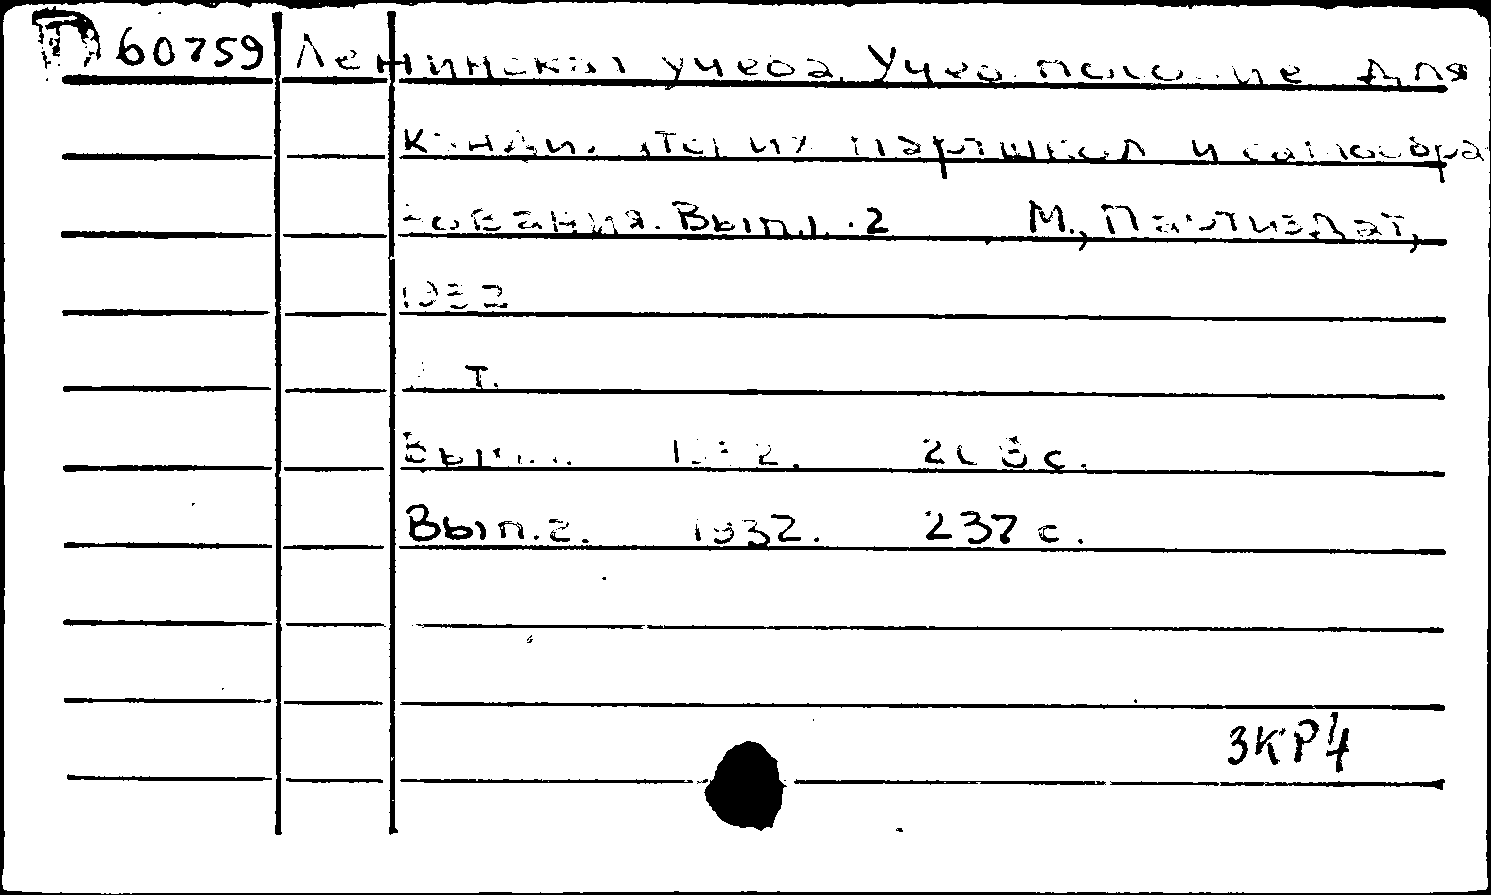 П 60759 Ленинская учеба. Учеб. пособие для
кандидатских партшкол и самообра
зования. Вып. 1-2 М., Партиздат,
1932
т.
Вып. 1. 1932. 208 с.
Вып. 2. 1932. 237 с.
ЗКР4